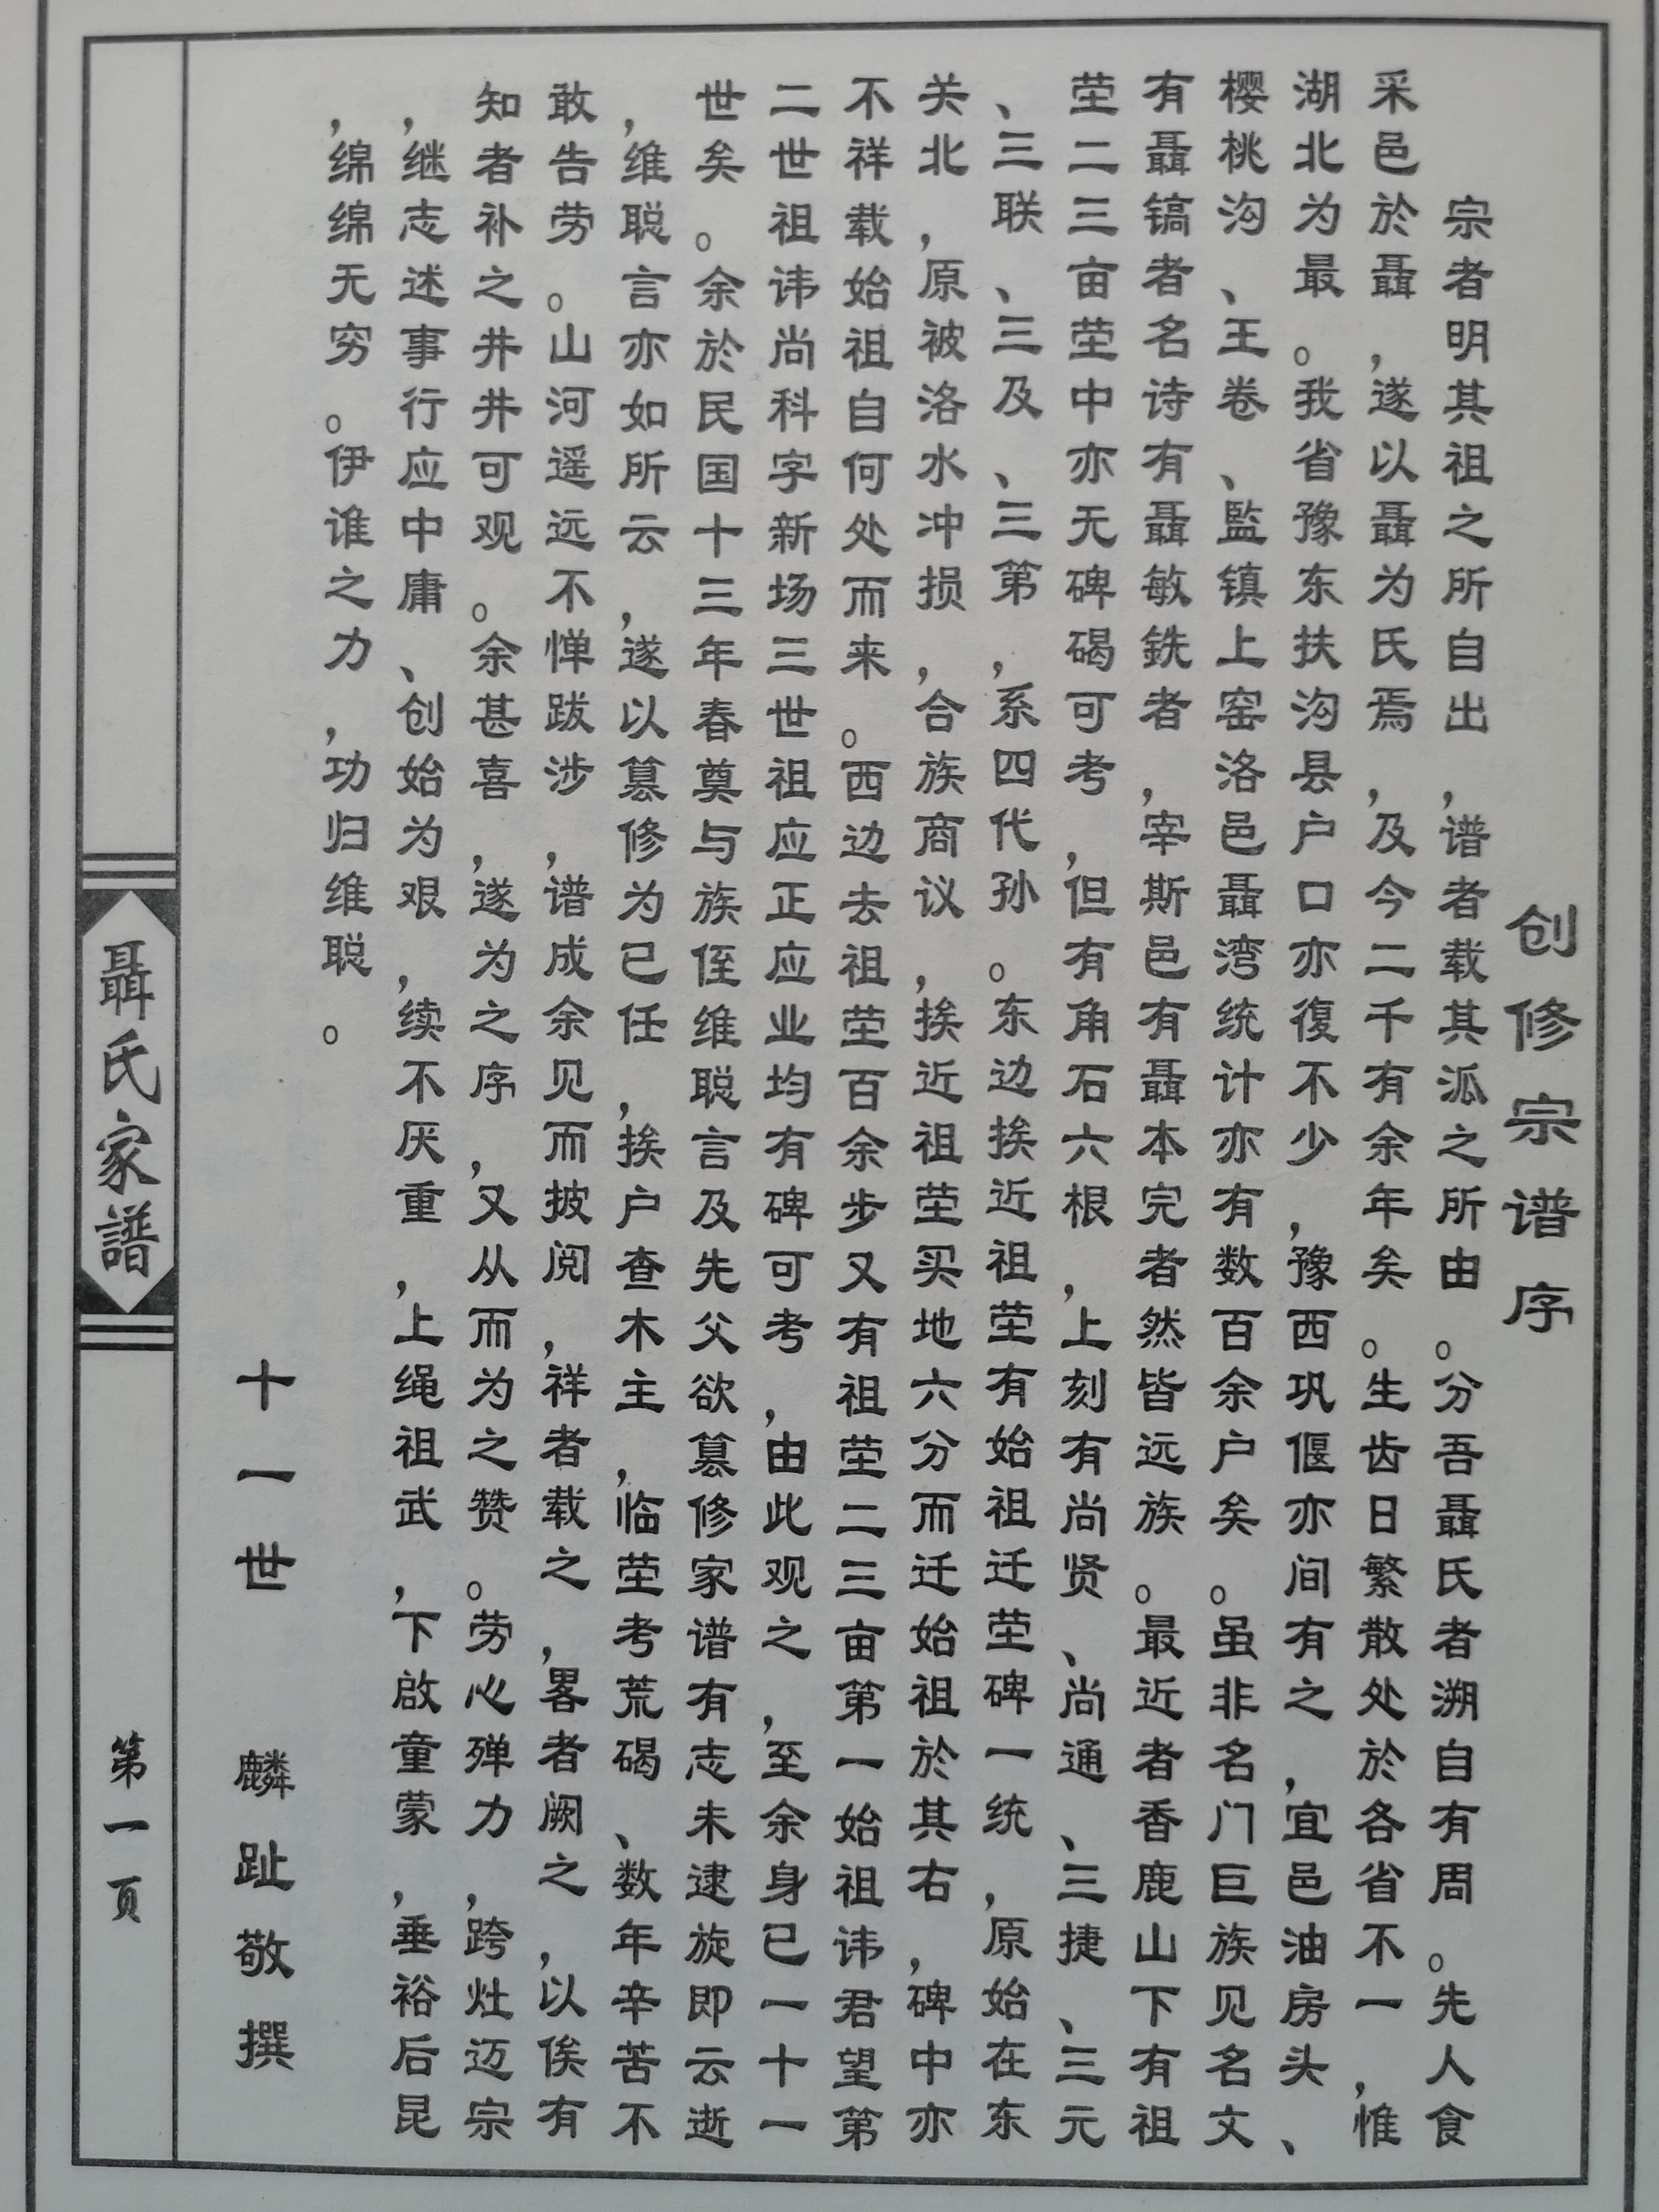 创修宗谱序
宗者明其祖之所自出，谱者载其派之所由。分吾聶氏者溯自有周。先人食
采邑於聶，遂以聶为氏焉，及今二千有余年矣。生齿日繁散处於各省不一，惟
湖北为最。我省豫东扶沟县户口亦復不少，豫西巩偃亦间有之，宜邑油房头、
樱桃沟、王卷、監镇上窑洛邑聶湾统计亦有数百余户矣。虽非名门巨族见名文
有聶镐者名诗有聶敏銑者，宰斯邑有聶本完者然皆远族。最近者香鹿山下有祖
茔二三亩茔中亦无碑碣可考，但有角石六根，上刻有尚贤、尚通、三捷、三元
、三联、三及、三第，系四代孙。东边挨近祖茔有始祖迁茔碑一统，原始在东
关北，原被洛水冲损，合族商议，挨近祖茔买地六分而迁始祖於其右，碑中亦
不祥载始祖自何处而来。西边去祖茔百余步又有祖茔二三亩第一始祖讳君望第
二世祖讳尚科字新场三世祖应正应业均有碑可考，由此观之，至余身已一十一
世矣。余於民国十三年春奠与族侄维聪言及先父欲篡修家谱有志未逮旋即云逝
，维聪言亦如所云，遂以篡修为己任，挨户查木主，临茔考荒碣、数年辛苦不
敢告劳。山河遥远不惮跋涉，谱成余见而披阅，祥者载之，畧者阙之，以俟有
知者补之井井可观。余甚喜，遂为之序，又从而为之赞。劳心殚力，跨灶迈宗
，继志述事行应中庸、创始为艰，续不厌重，上绳祖武，下啟童蒙，垂裕后昆
，绵绵无穷。伊谁之力，功归维聪。
十一世 麟趾敬撰
聶氏家譜
第一页